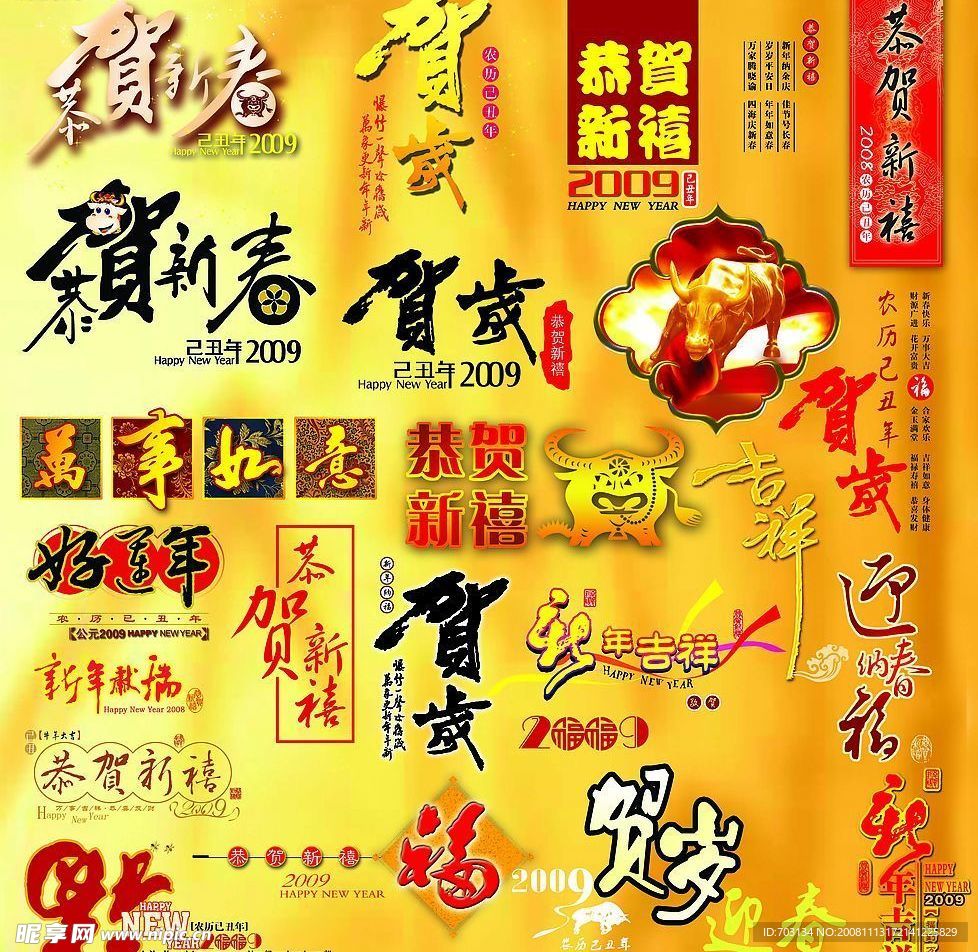 恭賀新春
己丑年2009
Happy New Year
賀歲
农历己丑年
爆竹一聲除舊歲
萬象更新年年新
恭賀
新禧
2009
己丑年
HAPPY NEW YEAR
恭贺新禧
新年纳余庆 佳节号长春
岁岁平安日 年年如意春
万家腾晓谕 四海庆新春
恭贺新禧
2008农历己丑年
恭賀新春
己丑年2009
Happy New Year
賀歲
恭贺新禧
己丑年2009
Happy New Year
农历己丑年
賀歲
福
新春快乐 万事大吉
财源广进 花开富贵
合家欢乐 吉祥如意 身体健康
金玉满堂 福禄寿禧 恭喜发财
萬事如意
恭贺
新禧
吉祥
好運年
农·历·己·丑·年
【公元2009 HAPPY NEW YEAR】
恭贺新禧
新年纳福
賀歲
爆竹一聲除舊歲
萬象更新年年新
新年吉祥
HAPPY NEW YEAR
恭贺
迎春纳福
新年献瑞
Happy New Year 2008
2009
【牛年大吉】
恭贺新禧
万/事/吉/祥·恭/喜/发/财
Happy New Year
2009
HAPPY
NEW
YEAR
[农历己丑年]
2009
恭贺新禧
2009
HAPPY NEW YEAR
福
贺岁
2009
农历己丑年
迎春
新年吉
HAPPY
NEW YEAR
2009
昵享网 www.nipic.cn
ID:703134 NO:20081113172141225829